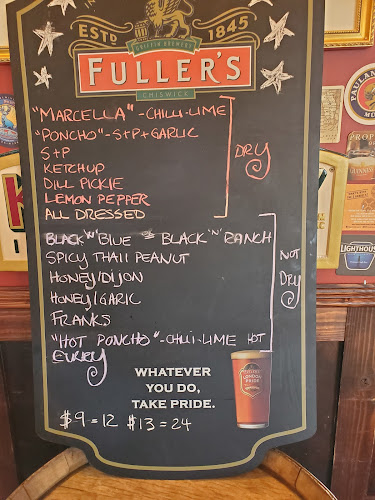 ESTD 1845
GRIFFIN BREWERY
FULLER'S
CHISWICK
"MARCELLA" - CHILI-LIME
"PONCHO" - S+P+GARLIC
S+P
KETCHUP
DILL PICKLE
LEMON PEPPER
ALL DRESSED
DRY
BLACK 'N' BLUE BLACK 'N' RANCH
SPICY THAI PEANUT
HONEY/DIJON
HONEY/GARLIC
FRANKS
"HOT PONCHO" - CHILI-LIME HOT
CURRY
NOT
DRY
WHATEVER
YOU DO,
TAKE PRIDE.
LONDON
PRIDE
$9=12 $13=24
PAULANER
GUINNESS
LIGHTHOUSE